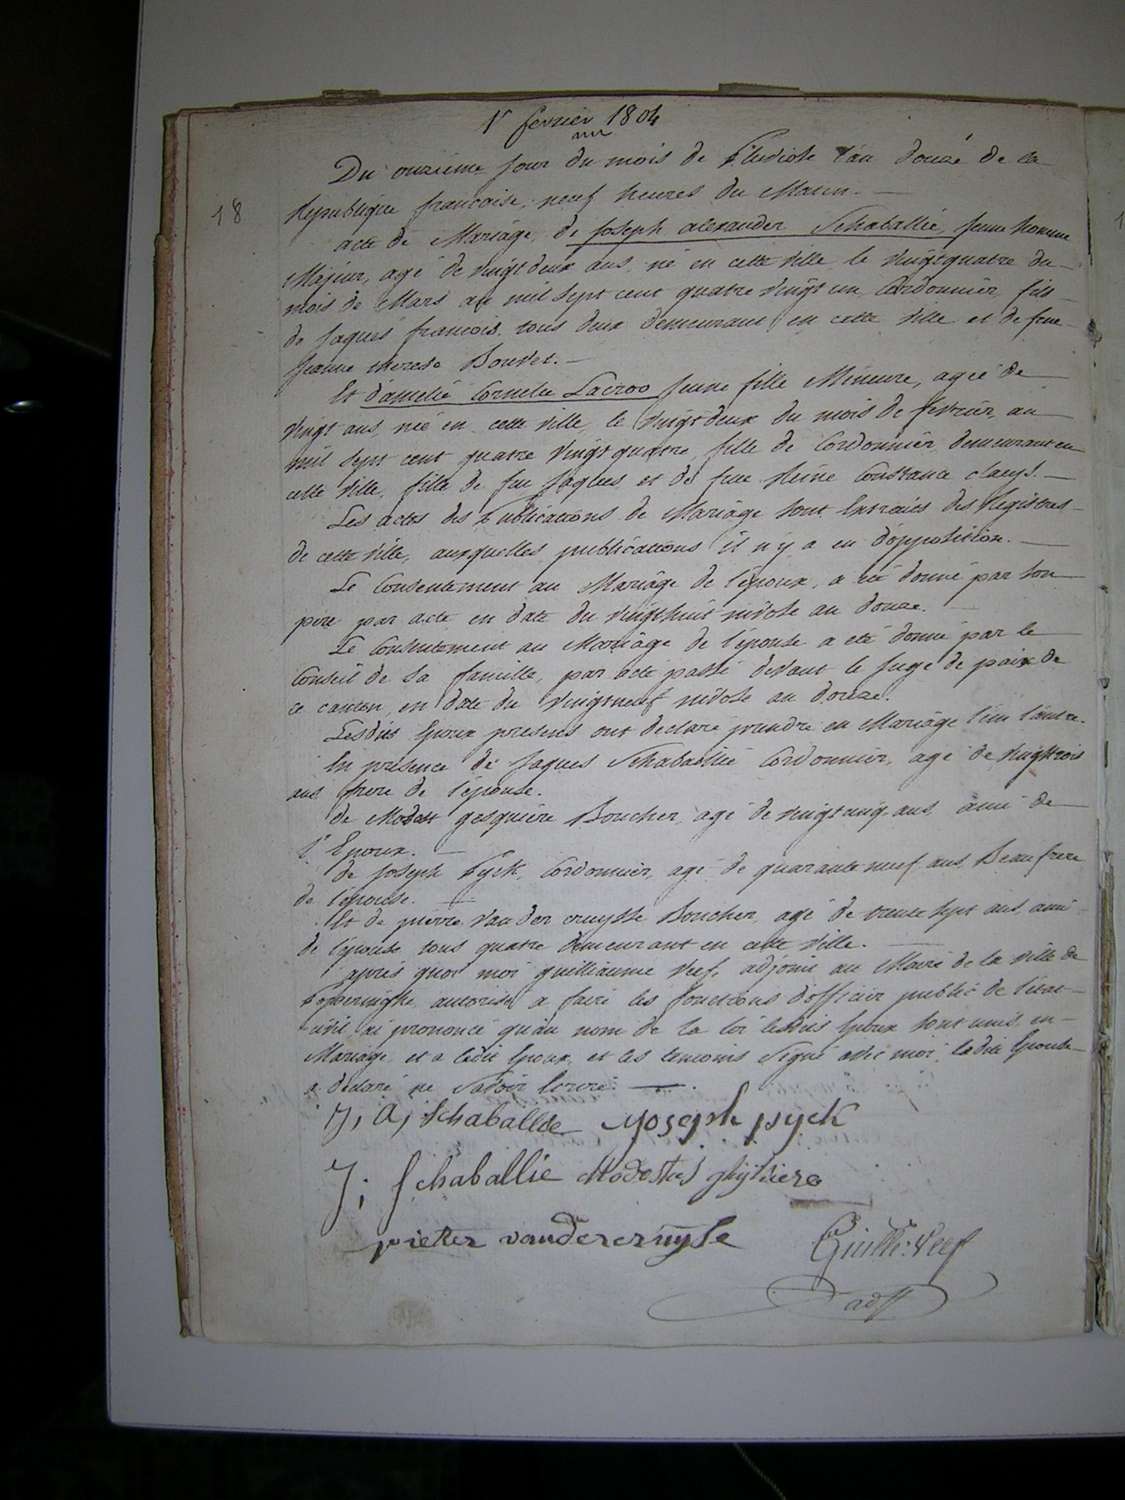 1r fevrier 1804
Du onzieme Jour du mois de Pluviose l'an douze de la
18
Republique francaise, neuf heures du Matin. —
acte de Mariâge, de Joseph alexander Schaballie, Jeune homme
Majeur, agé de vingt deux ans, né en cette ville le vingtquatre du
mois de Mars an mil sept cent quatre vingt un, Cordonnier, fils
de Jaques francois, tous deux demeurant en cette ville et de feue
Jeanne therese Bouvet. —
Et d'amelie Cornelie Lacroo Jeune fille Mineure, agée de
vingt ans, née en cette ville, le vingt deux du mois de fevrier, an
mil sept cent quatre vingt quatre, fille de Cordonnier, demeurant en
cette ville, fille de feu Jaques, et de feue Reine Constance claeys. —
Les actes des Publications de Mariâge sont Extraits des Registres
de cette ville, auxquelles publications il n'y a eu d'opposition. —
Le Consentement au Mariâge de l'époux, a été donné par son
pere par acte en date du vingthuit nivôse an douze. —
Le Consentement au Mariâge de l'épouse a eté donné par le
Conseil de sa famille, par acte passé devant le Juge de paix de
ce canton, en date du vingtneuf nivose an douze.
Lesdits Epoux presens ont declaré prendre en Mariâge l'un l'autre.
En presence de Jaques Schabaillie Cordonnier, agé de vingttrois
ans frere de l'épouse.
de Modest gesquiére Boucher, agé de vingt ans, ami de
l'Epoux. —
de Joseph Pyck, Cordonnier, agé de quarante neuf ans, Beaufrere
de l'epouse. —
Et de pierre Vander cruysse Boucher, agé de trente sept ans, ami
de l'épouse tous quatre demeurant en cette ville. —
après quoi moi guilliaume Veef, adjoint au Maire de la ville de
Poperinghe, autorisé a faire les fonctions d'officier public de l'état
civil, ai prononcé qu'au nom de la loi lesdits Epoux sont unis en
Mariâge, et a ledit Epoux, et les temoins signé avec moi, ladite Epouse
a declaré ne savoir Ecrire. —
J, A, Schaballie Yoseph pyck
J; Schaballie Modestus ghysiere
pieter vandercruysse Guille: Veef
adjt